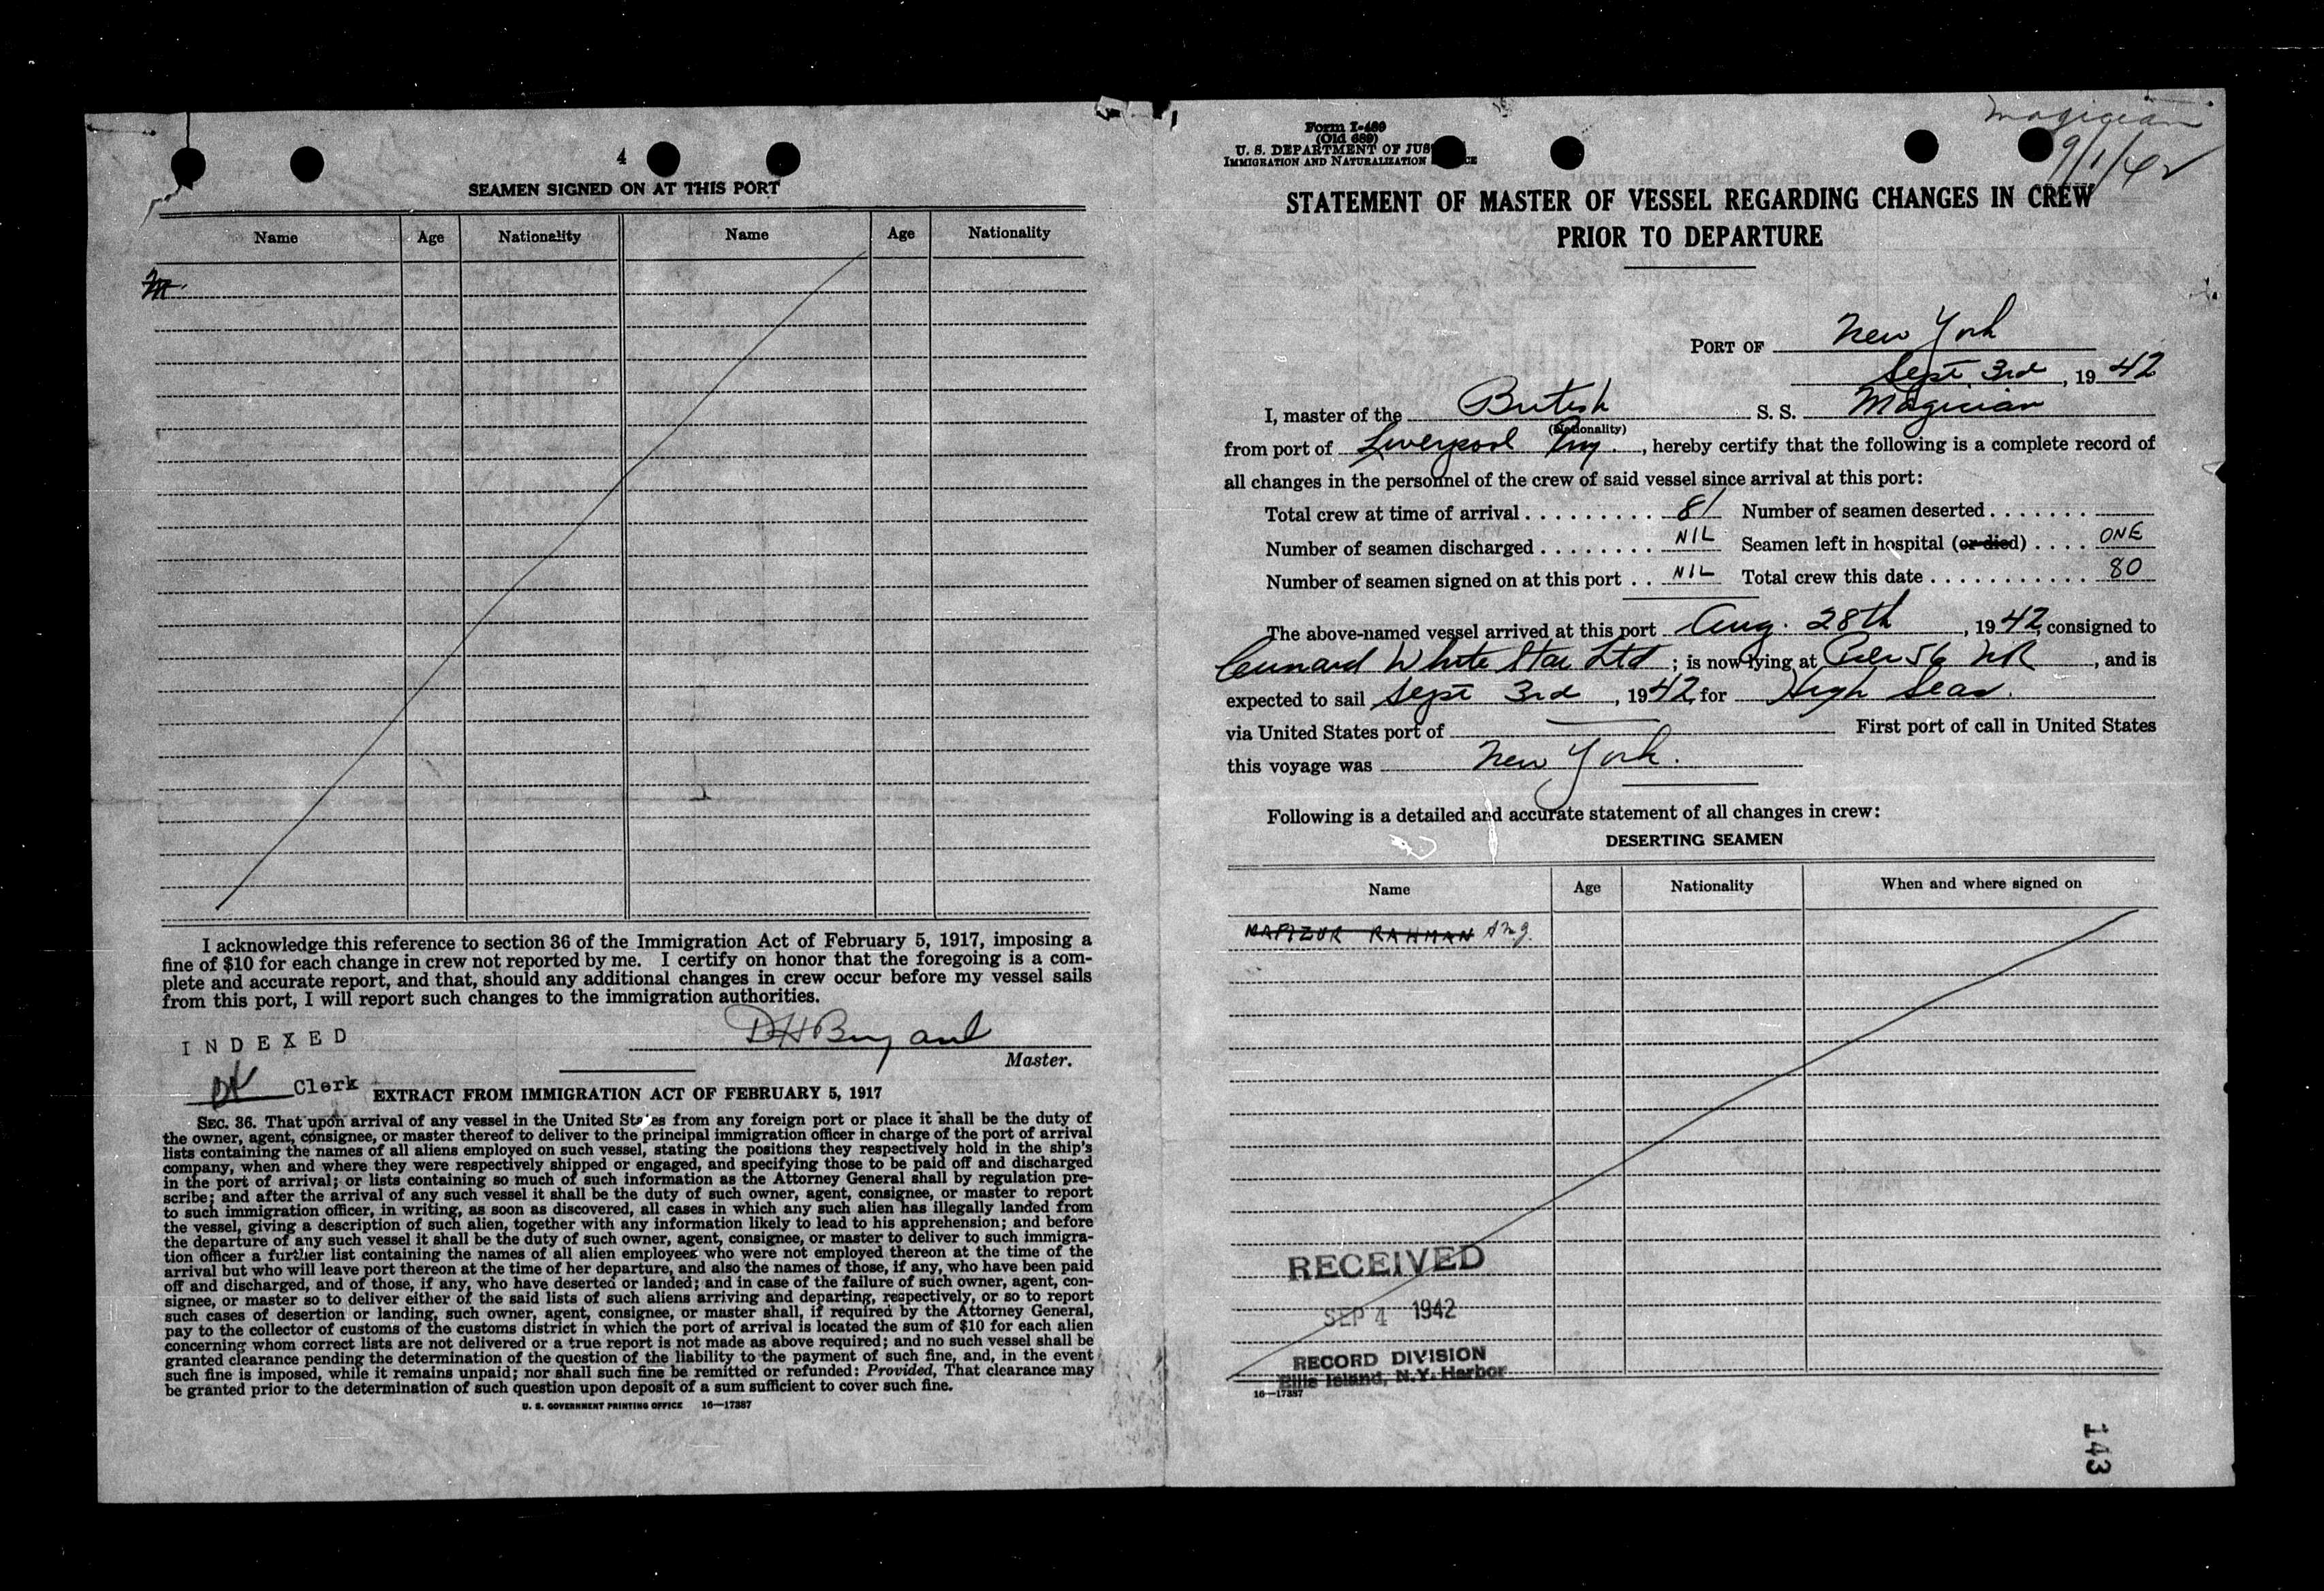 4
SEAMEN SIGNED ON AT THIS PORT
Name Age Nationality Name Age Nationality
I acknowledge this reference to section 36 of the Immigration Act of February 5, 1917, imposing a
fine of $10 for each change in crew not reported by me. I certify on honor that the foregoing is a com-
plete and accurate report, and that, should any additional changes in crew occur before my vessel sails
from this port, I will report such changes to the immigration authorities.
INDEXED
Master.
Clerk
EXTRACT FROM IMMIGRATION ACT OF FEBRUARY 5, 1917
SEC. 36. That upon arrival of any vessel in the United States from any foreign port or place it shall be the duty of
the owner, agent, consignee, or master thereof to deliver to the principal immigration officer in charge of the port of arrival
lists containing the names of all aliens employed on such vessel, stating the positions they respectively hold in the ship's
company, when and where they were respectively shipped or engaged, and specifying those to be paid off and discharged
in the port of arrival; or lists containing so much of such information as the Attorney General shall by regulation pre-
scribe; and after the arrival of any such vessel it shall be the duty of such owner, agent, consignee, or master to report
to such immigration officer, in writing, as soon as discovered, all cases in which any such alien has illegally landed from
the vessel, giving a description of such alien, together with any information likely to lead to his apprehension; and before
the departure of any such vessel it shall be the duty of such owner, agent, consignee, or master to deliver to such immigra-
tion officer a further list containing the names of all alien employees who were not employed thereon at the time of the
arrival but who will leave port thereon at the time of her departure, and also the names of those, if any, who have been paid
off and discharged, and of those, if any, who have deserted or landed; and in case of the failure of such owner, agent, con-
signee, or master so to deliver either of the said lists of such aliens arriving and departing, respectively, or so to report
such cases of desertion or landing, such owner, agent, consignee, or master shall, if required by the Attorney General,
pay to the collector of customs of the customs district in which the port of arrival is located the sum of $10 for each alien
concerning whom correct lists are not delivered or a true report is not made as above required; and no such vessel shall be
granted clearance pending the determination of the question of the liability to the payment of such fine, and, in the event
such fine is imposed, while it remains unpaid; nor shall such fine be remitted or refunded: Provided, That clearance may
be granted prior to the determination of such question upon deposit of a sum sufficient to cover such fine.
U. S. GOVERNMENT PRINTING OFFICE 16—17387
Magician
9/1/42
Form I-489
(Old 689)
U. S. DEPARTMENT OF JUS
IMMIGRATION AND NATURALIZATION
STATEMENT OF MASTER OF VESSEL REGARDING CHANGES IN CREW
PRIOR TO DEPARTURE
PORT OF New York
Sept 3rd, 1942
I, master of the British S. S. Magician
(Nationality)
from port of Liverpool Eng., hereby certify that the following is a complete record of
all changes in the personnel of the crew of said vessel since arrival at this port:
Total crew at time of arrival . . . . . . . . . 81 Number of seamen deserted . . . . . . .
Number of seamen discharged . . . . . . . . NIL Seamen left in hospital (or died) . . . . ONE
Number of seamen signed on at this port . . NIL Total crew this date . . . . . . . . . . . . 80
The above-named vessel arrived at this port Aug. 28th, 1942, consigned to
Cunard White Star Ltd; is now lying at Pier 56 NR, and is
expected to sail Sept 3rd, 1942, for High Seas.
via United States port of — First port of call in United States
this voyage was New York.
Following is a detailed and accurate statement of all changes in crew:
DESERTING SEAMEN
Name Age Nationality When and where signed on
MAFIZUR RAHMAN
RECEIVED
SEP 4 1942
RECORD DIVISION
Ellis Island, N.Y. Harbor
16—17387
143